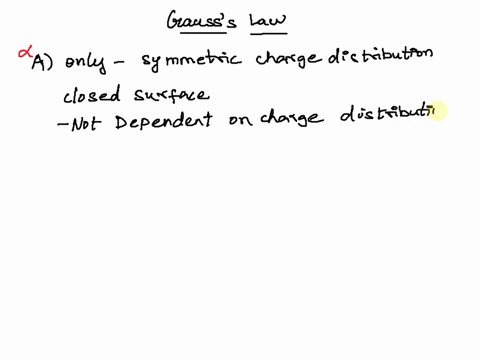 Gauss's Law
αA) only - symmetric charge distribution
closed surface
- Not Dependent on charge distributi